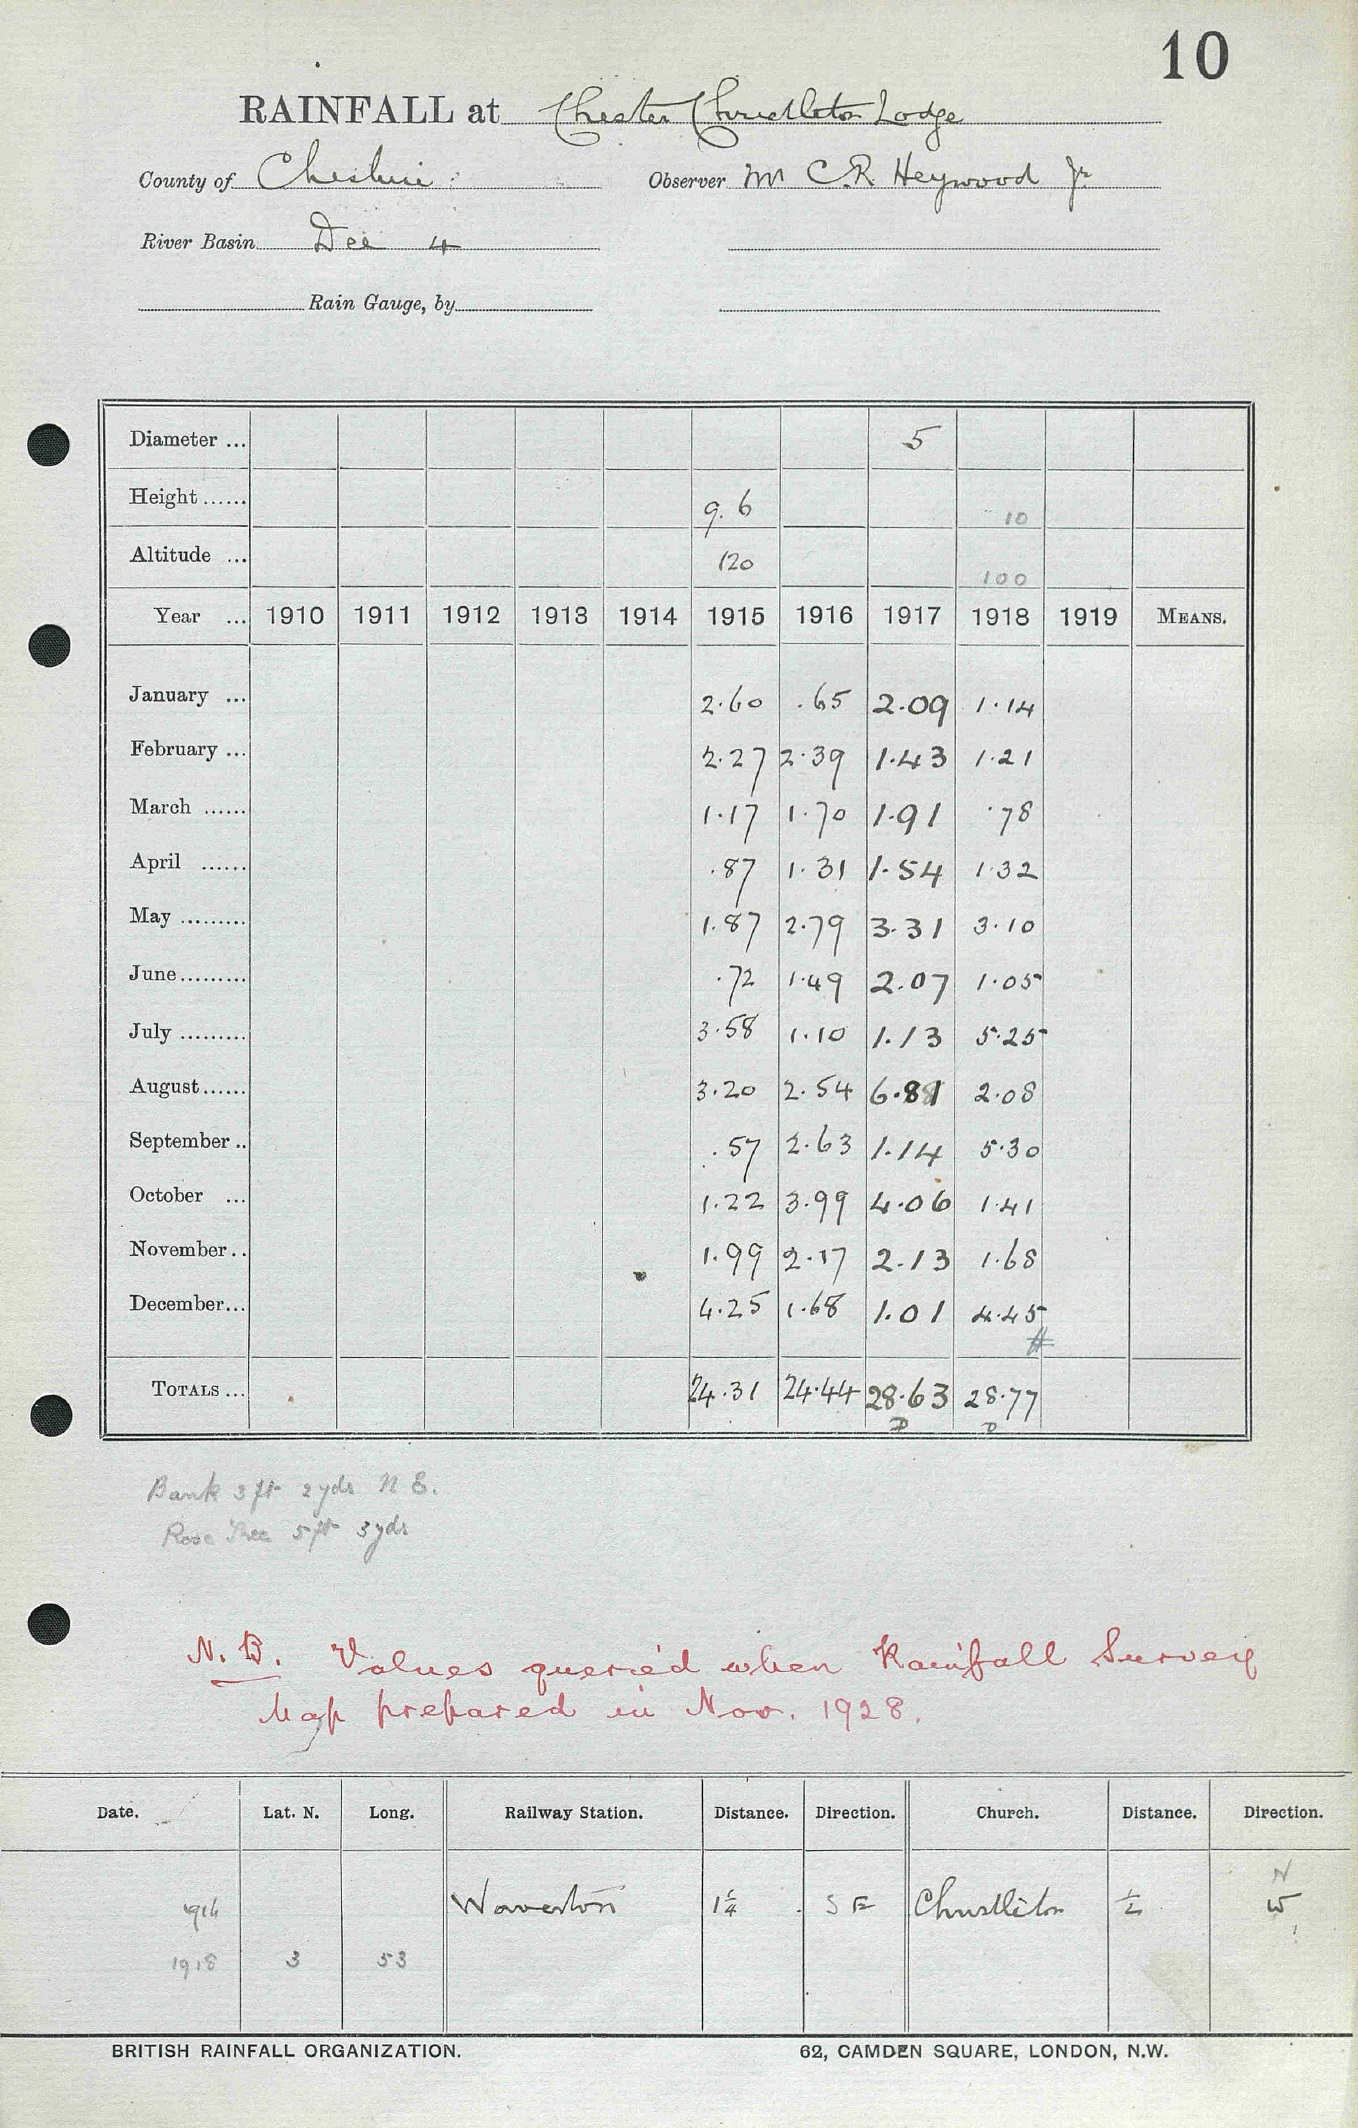 10
RAINFALL at Chester Christleton Lodge
County of Cheshire Observer Mr C.R Heywood Jr
River Basin Dee 4
Rain Gauge, by
Diameter ... 5
Height ...... 9.6 10
Altitude ... 120 100
Year ... 1910 1911 1912 1913 1914 1915 1916 1917 1918 1919 MEANS.
January ... 2.60 .65 2.09 1.14
February ... 2.27 2.39 1.43 1.21
March ...... 1.17 1.70 1.91 .78
April ...... .87 1.31 1.54 1.32
May ......... 1.87 2.79 3.31 3.10
June ......... .72 1.49 2.07 1.05
July ......... 3.58 1.10 1.13 5.25
August ...... 3.20 2.54 6.81 2.08
September .. .57 2.63 1.14 5.30
October ... 1.22 3.99 4.06 1.41
November .. 1.99 2.17 2.13 1.68
December ... 4.25 1.68 1.01 4.45
TOTALS ... 24.31 24.44 28.63 28.77
Bank 3 ft 2 yds N E.
Rose Tree 5 ft 3 yds
N.B. Values queried when Rainfall Survey
Map prepared in Nov. 1928.
Date. Lat. N. Long. Railway Station. Distance. Direction. Church. Distance. Direction.
N
1916 Waverton 1 1/4 S E Christleton 1/2 W
1918 3 53
BRITISH RAINFALL ORGANIZATION. 62, CAMDEN SQUARE, LONDON, N.W.